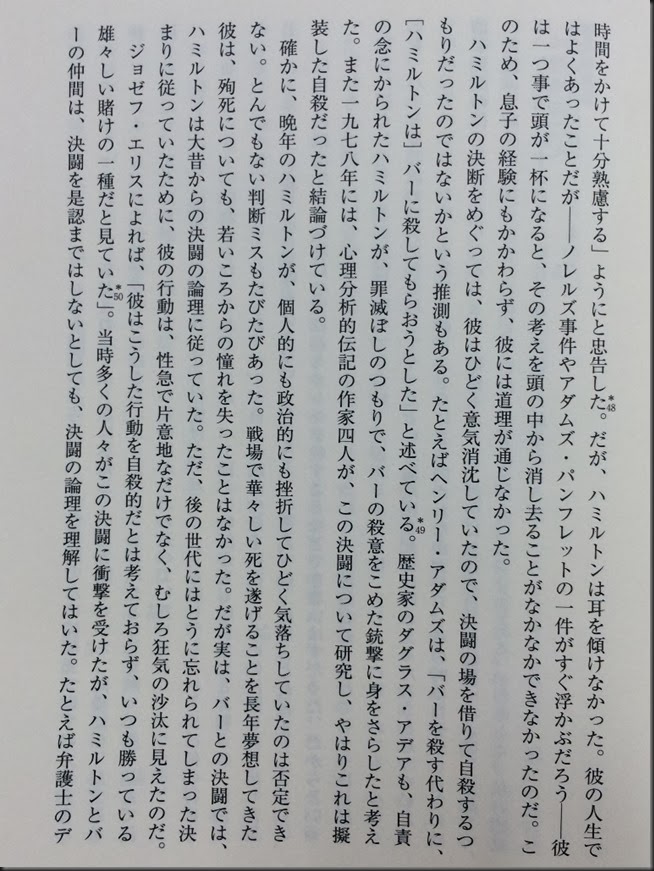 時間をかけて十分熟慮する」ようにと忠告した。*48だが、ハミルトンは耳を傾けなかった。彼の人生で
はよくあったことだが――ノレルズ事件やアダムズ・パンフレットの一件がすぐ浮かぶだろう――彼
は一つ事で頭が一杯になると、その考えを頭の中から消し去ることがなかなかできなかったのだ。こ
のため、息子の経験にもかかわらず、彼には道理が通じなかった。
ハミルトンの決断をめぐっては、彼はひどく意気消沈していたので、決闘の場を借りて自殺するつ
もりだったのではないかという推測もある。たとえばヘンリー・アダムズは、「バーを殺す代わりに、
［ハミルトンは］バーに殺してもらおうとした」と述べている。*49歴史家のダグラス・アデアも、自責
の念にかられたハミルトンが、罪滅ぼしのつもりで、バーの殺意をこめた銃撃に身をさらしたと考え
た。また一九七八年には、心理分析的伝記の作家四人が、この決闘について研究し、やはりこれは擬
装した自殺だったと結論づけている。
確かに、晩年のハミルトンが、個人的にも政治的にも挫折してひどく気落ちしていたのは否定でき
ない。とんでもない判断ミスもたびたびあった。戦場で華々しい死を遂げることを長年夢想してきた
彼は、殉死についても、若いころからの憧れを失ったことはなかった。だが実は、バーとの決闘では、
ハミルトンは大昔からの決闘の論理に従っていた。ただ、後の世代にはとうに忘れられてしまった決
まりに従っていたために、彼の行動は、性急で片意地なだけでなく、むしろ狂気の沙汰に見えたのだ。
ジョゼフ・エリスによれば、「彼はこうした行動を自殺的だとは考えておらず、いつも勝っている
雄々しい賭けの一種だと見ていた」。*50当時多くの人々がこの決闘に衝撃を受けたが、ハミルトンとバ
ーの仲間は、決闘を是認まではしないとしても、決闘の論理を理解してはいた。たとえば弁護士のデ